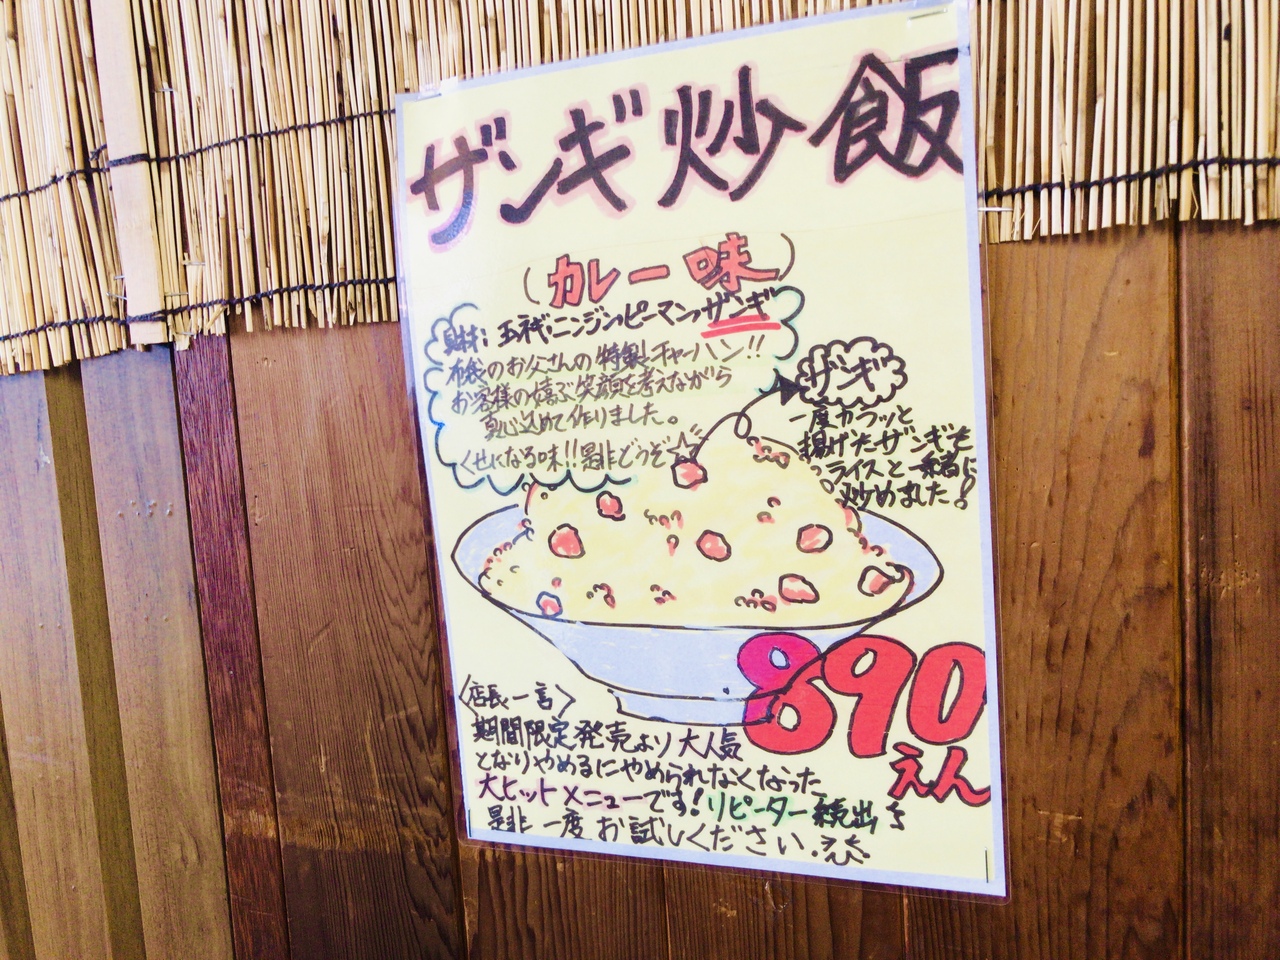 ザンギ炒飯
(カレー味)
具材: 玉ネギ・ニンジン・ピーマン・ザンギ
のお父さんの特製チャーハン!!
お客様の嬉ぶ笑顔を考えながら
真心込めて作りました。
くせになる味!!是非どうぞ☆
ザンギ
一度カラッと
揚げたザンギを
ライスと一緒に
炒めました!
890
えん
〈店長一言〉
期間限定発売より大人気
となりやめるにやめられなくなった
大ヒットメニューです!リピーター続出
是非一度お試しください